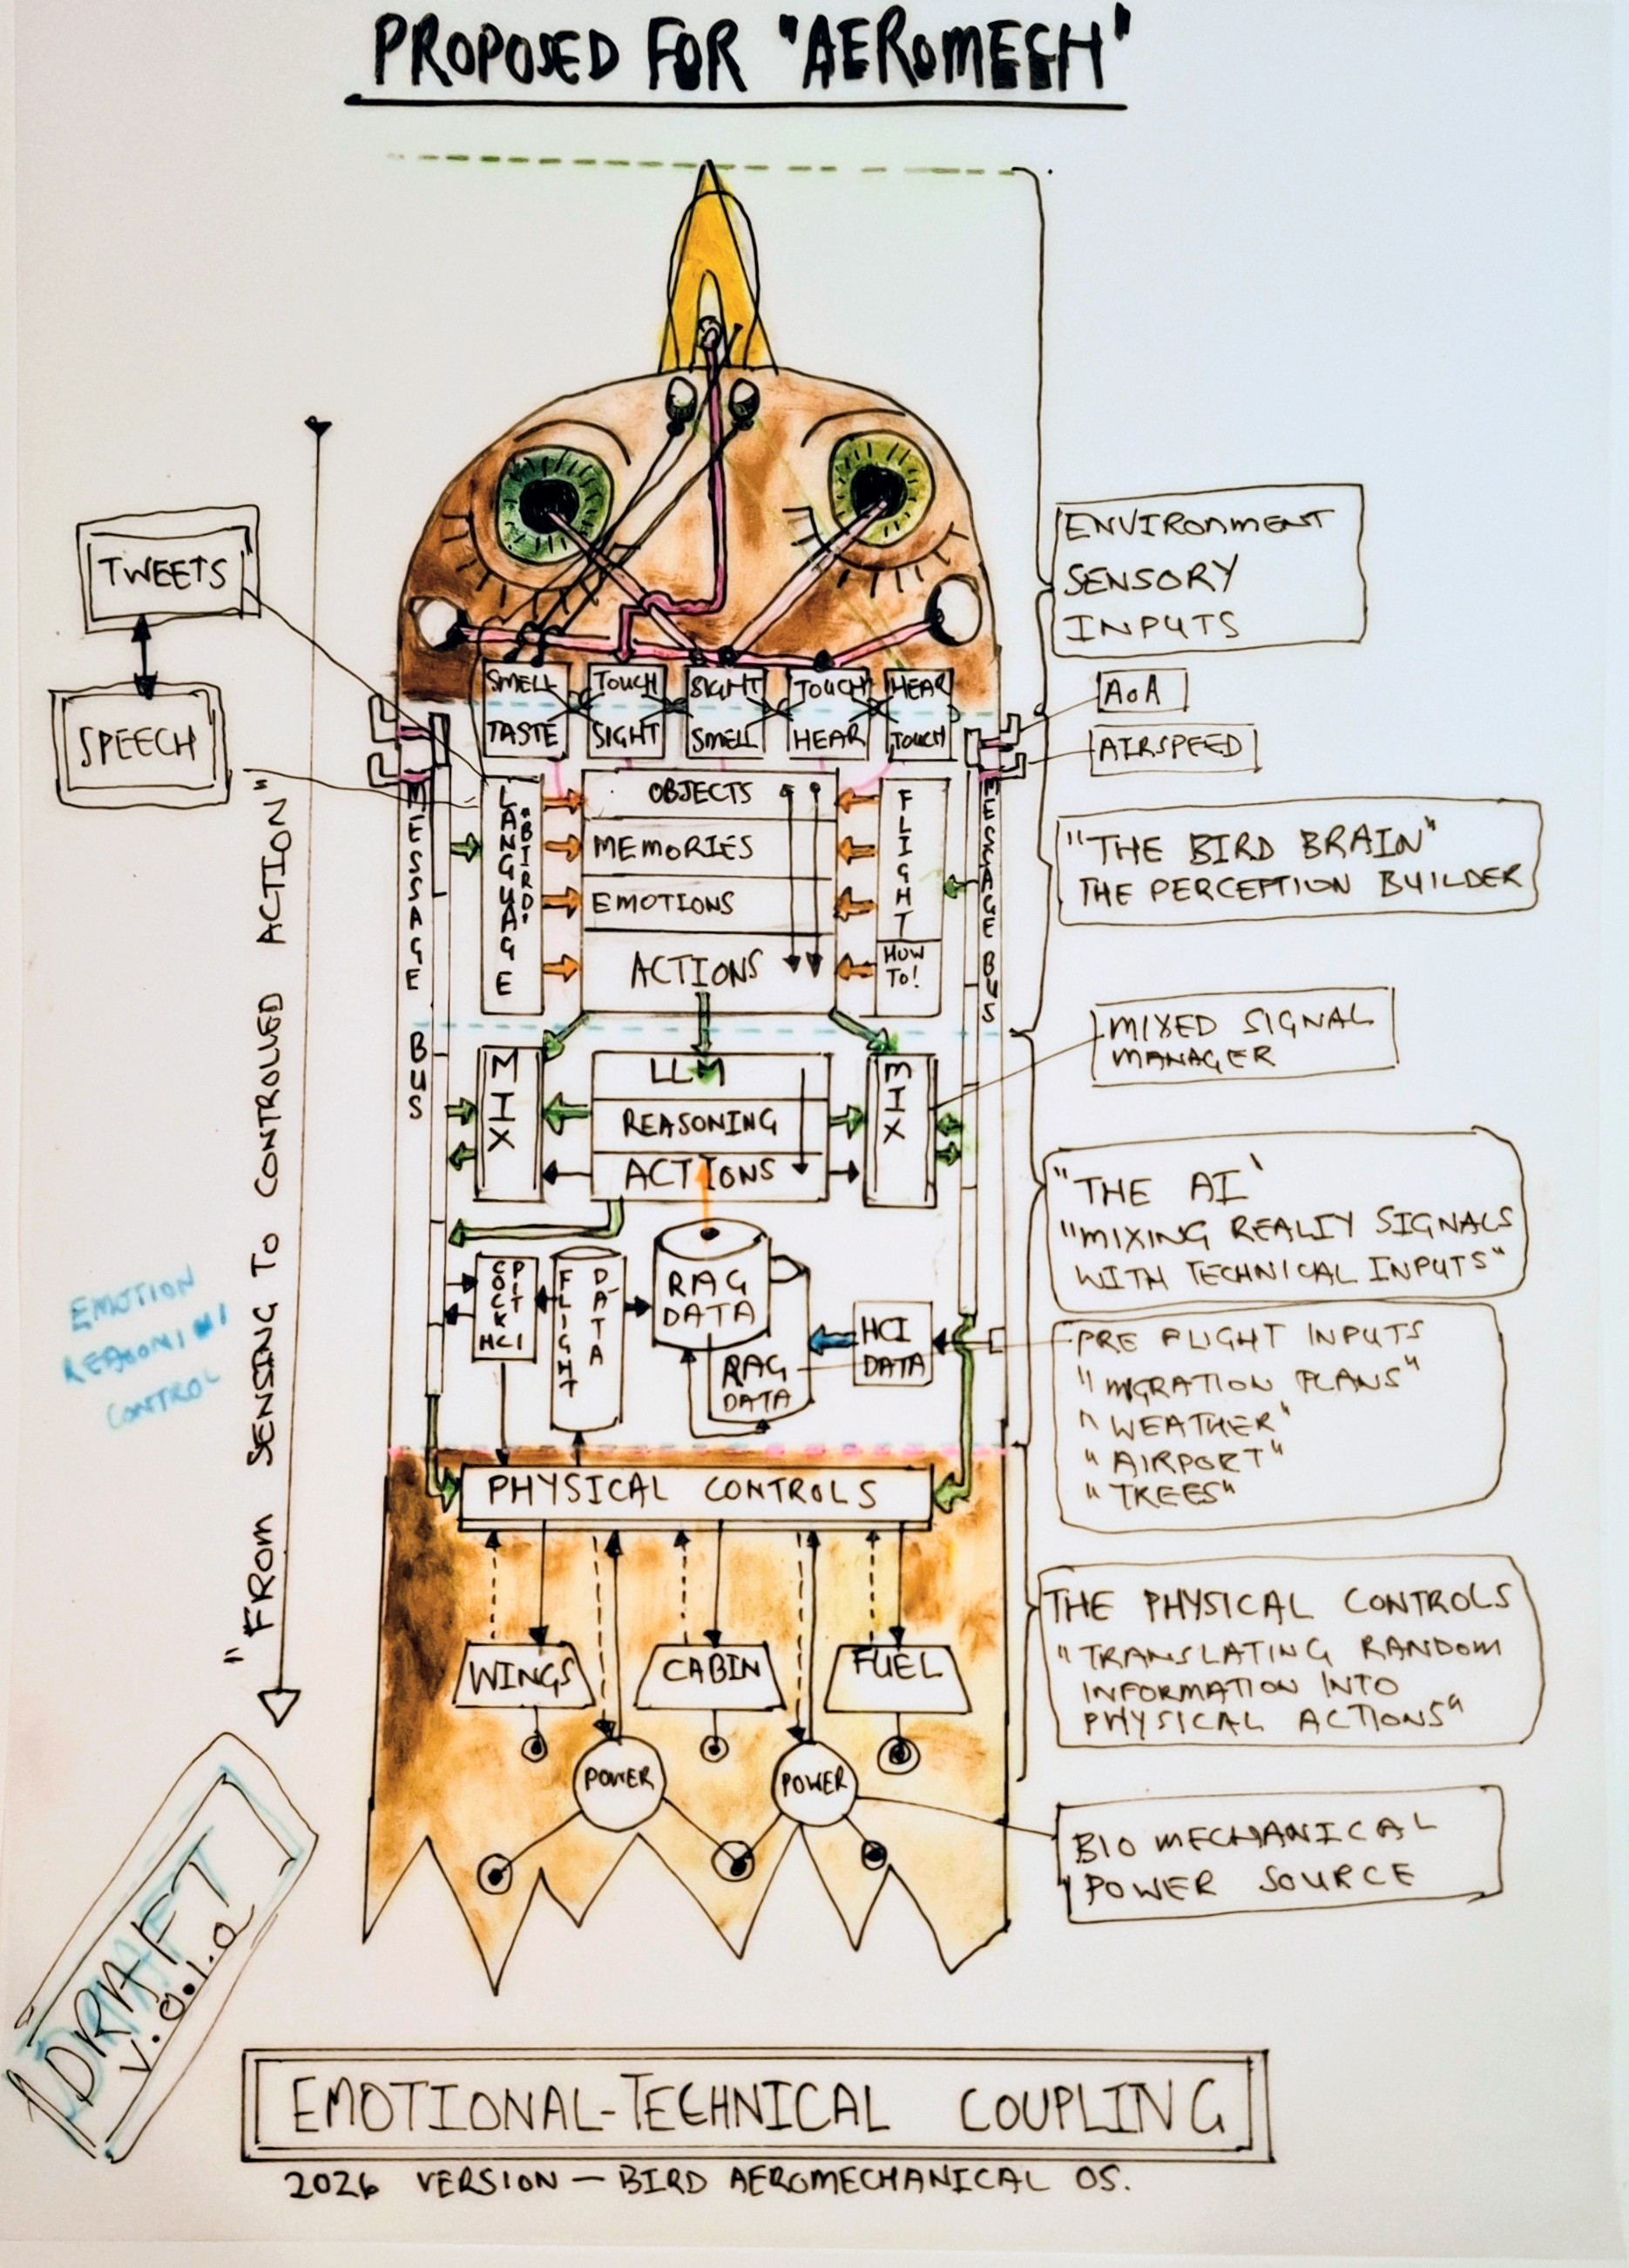 PROPOSED FOR "AEROMECH"
TWEETS
SPEECH
"FROM SENSING TO CONTROLLED ACTION"
EMOTION
CONTROL
SMELL
TASTE
TOUCH
SIGHT
SIGHT
SMELL
TOUCH
HEAR
HEAR
TOUCH
MESSAGE BUS
LANGUAGE
"BIRD"
OBJECTS
MEMORIES
EMOTIONS
ACTIONS
FLIGHT
HOW
TO!
MESSAGE BUS
MIX
LLM
REASONING
ACTIONS
MIX
COCKPIT
HCI
FLIGHT
DATA
RAG
DATA
RAG
DATA
HCI
DATA
PHYSICAL CONTROLS
WINGS
CABIN
FUEL
POWER
POWER
ENVIRONMENT
SENSORY
INPUTS
AoA
AIRSPEED
"THE BIRD BRAIN"
THE PERCEPTION BUILDER
MIXED SIGNAL
MANAGER
"THE AI"
"MIXING REALIY SIGNALS
WITH TECHNICAL INPUTS"
PRE FLIGHT INPUTS
"MIGRATION PLANS"
"WEATHER"
"AIRPORT"
"TREES"
THE PHYSICAL CONTROLS
"TRANSLATING RANDOM
INFORMATION INTO
PHYSICAL ACTIONS"
BIO MECHANICAL
POWER SOURCE
DRAFT
V.0.1.0
EMOTIONAL-TECHNICAL COUPLING
2026 VERSION – BIRD AEROMECHANICAL OS.